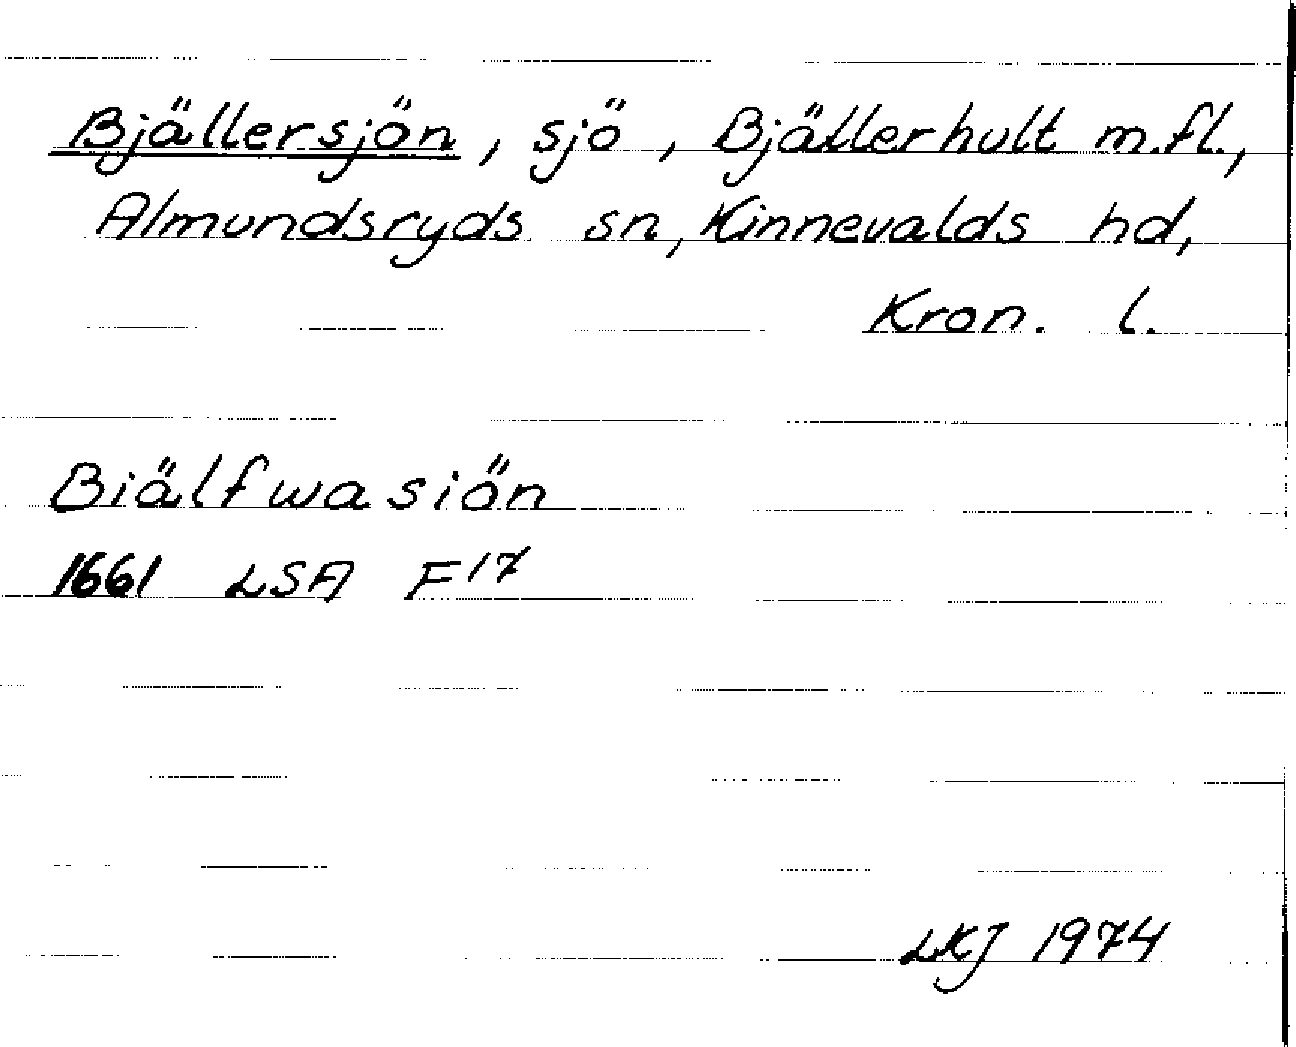 Bjällersjön, sjö, Bjällerhult m.fl.,
Almundsryds sn, Kinnevalds hd,
Kron. l.
Biälfwasiön
1661 LSA F17
LKJ 1974